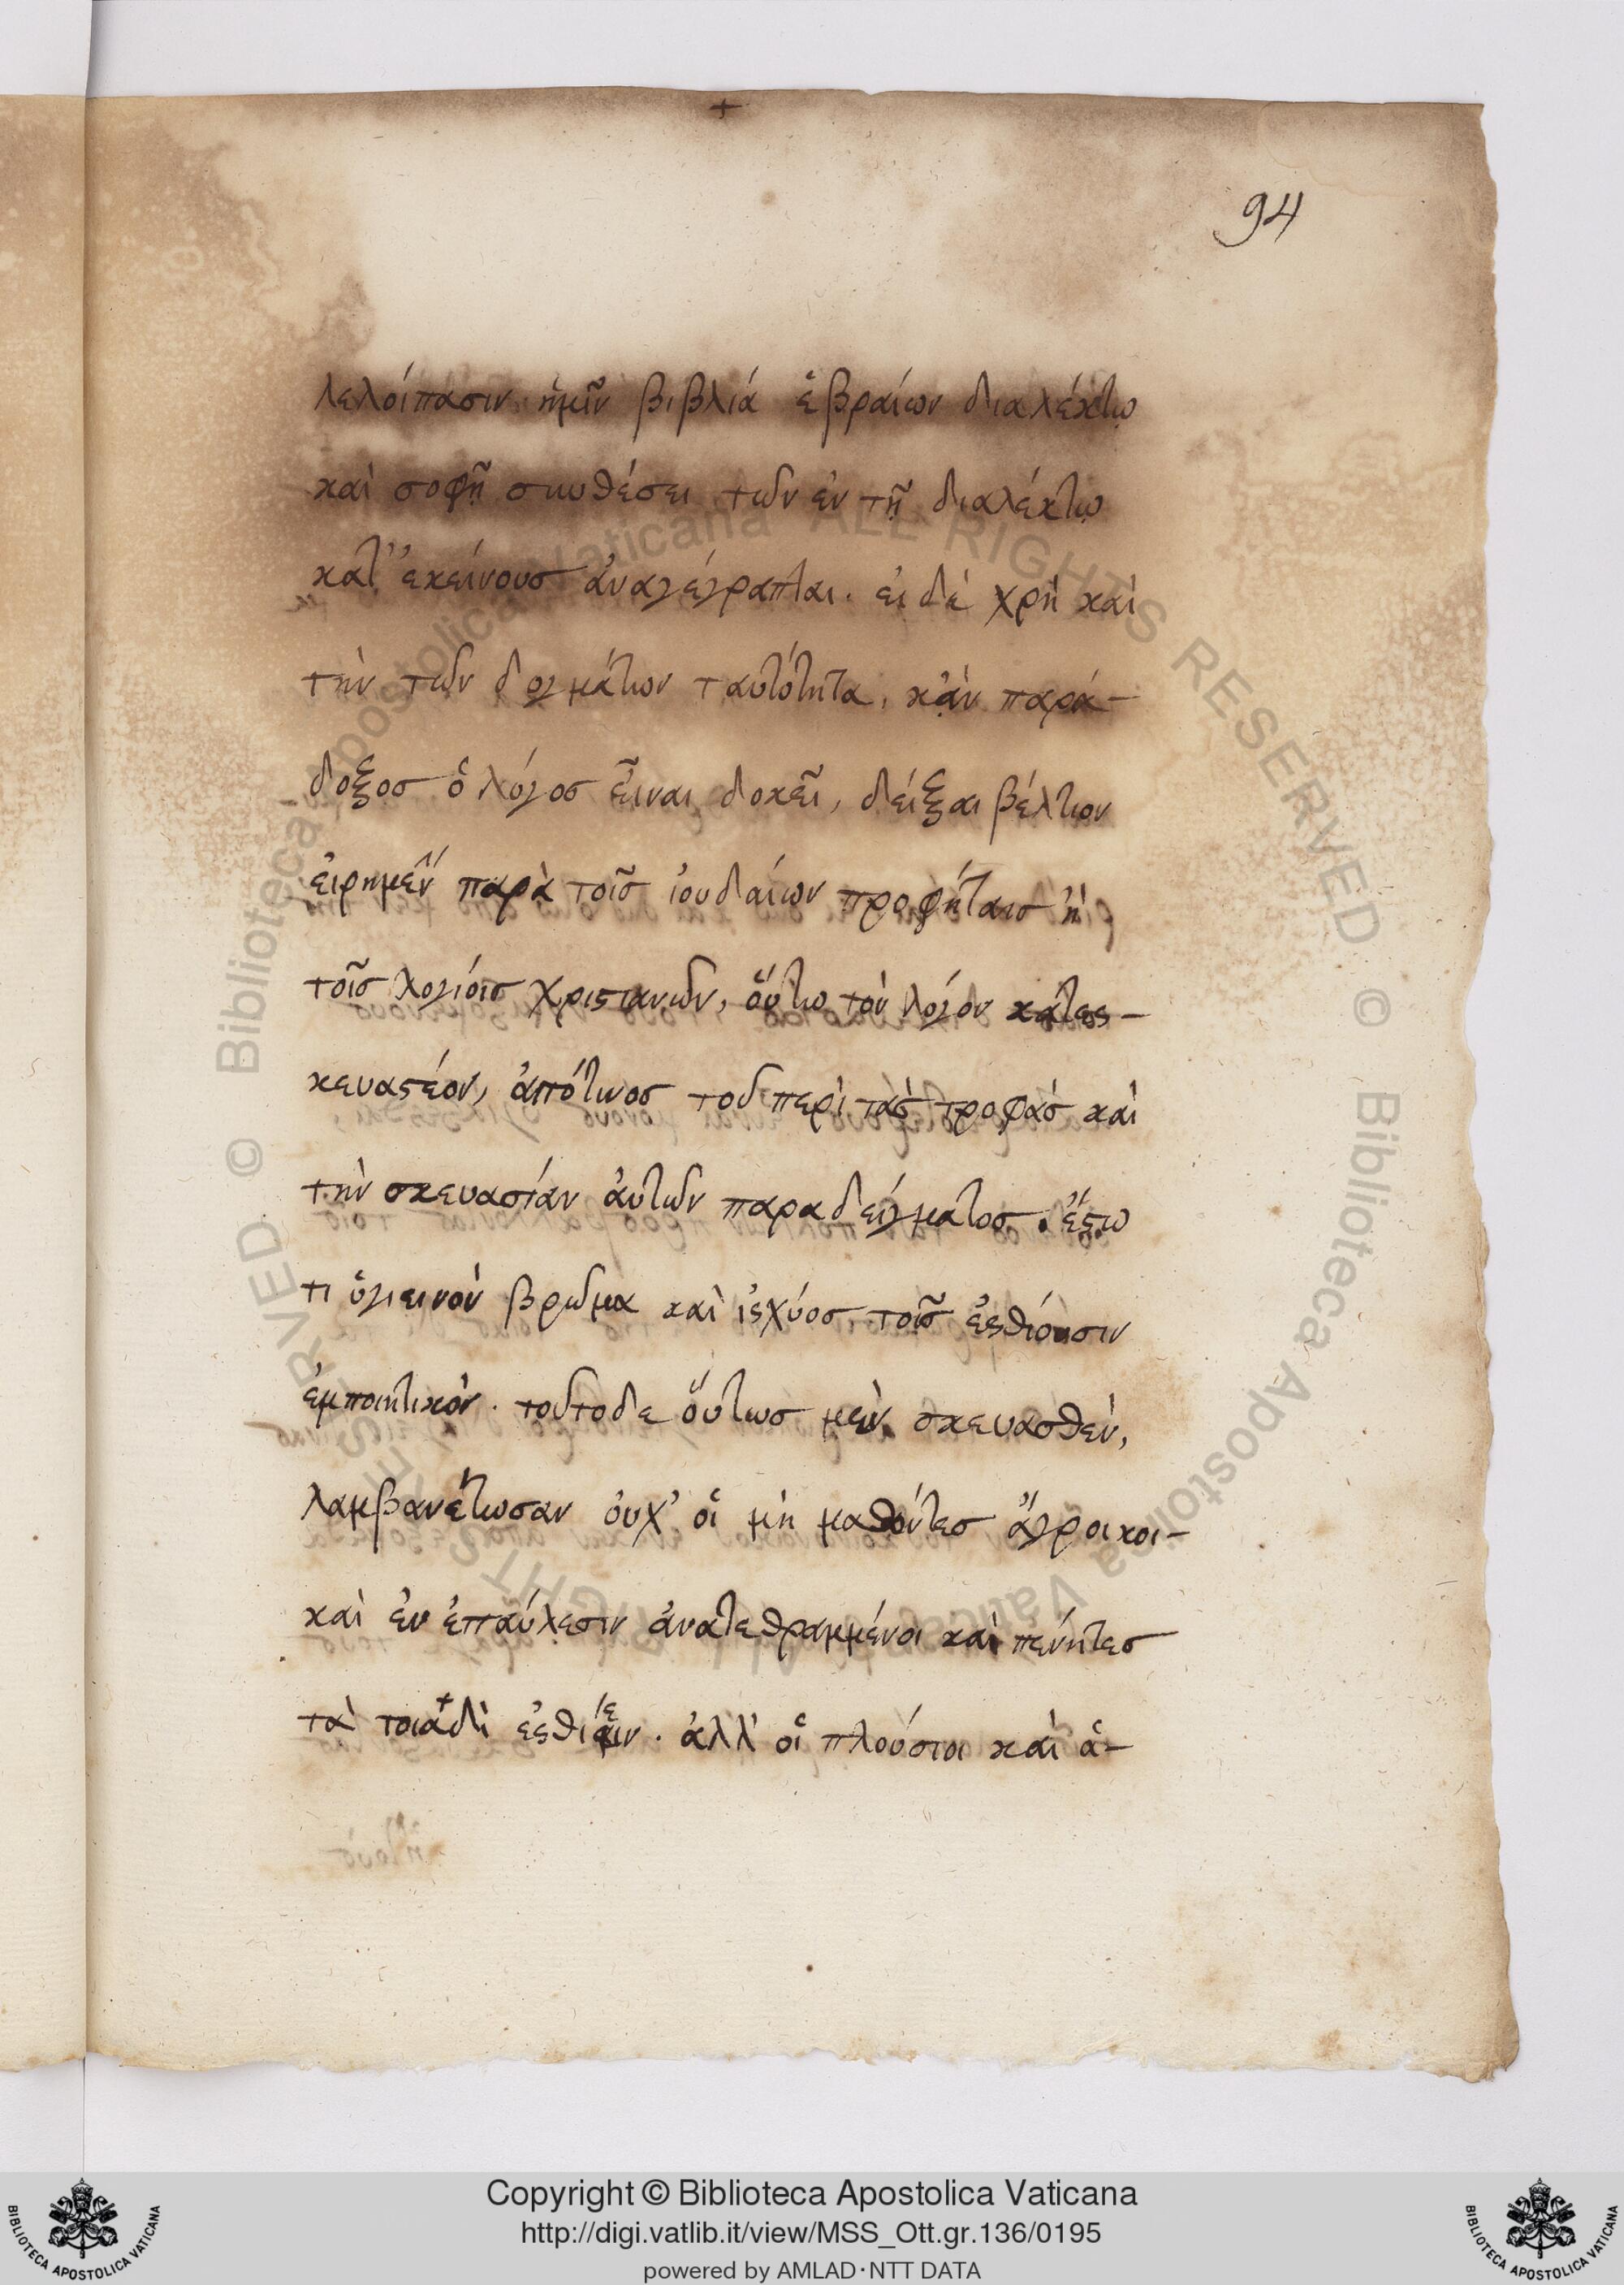 94
λελοίπασιν ἡμῖν βιβλία ἑβραίων διαλέκτῳ
καὶ σοφῇ συνθέσει τῶν ἐν τῇ διαλέκτῳ
κατ' ἐκείνους ἀναγέγραπται. εἰ δὲ χρὴ καὶ
τὴν τῶν δογμάτων ταυτότητα, κᾂν παρά-
δοξος ὁ λόγος εἶναι δοκεῖ, δεῖξαι βέλτιον
εἰρημέν παρὰ τοῖς ἰουδαίων προφήταις ἢ
τοῖς λογίοις χριστιανῶν, οὕτω τὸν λόγον κατες-
κευαστέον, ἀπότινος τοῦ περὶ τὰς τροφὰς καὶ
τὴν σκευασίαν αὐτῶν παραδείγματος. ἔστω
τι ὑγιεινὸν βρῶμα καὶ ἰσχύος τοῖς ἐσθίουσιν
ἐμποιητικόν. τοῦτοδε οὕτως μὲν σκευασθὲν,
λαμβανέτωσαν οὐχ' οἱ μὴ μαθόντες ἄγροικοι-
καὶ ἐν ἐπαύλεσιν ἀνατεθραμμένοι καὶ πένητες
τὰ τοιαδὶ ἐσθίειν. ἀλλ' οἱ πλούσιοι καὶ ἁ-
Copyright © Biblioteca Apostolica Vaticana
http://digi.vatlib.it/view/MSS_Ott.gr.136/0195
powered by AMLAD·NTT DATA
BIBLIOTECA APOSTOLICA VATICANA
BIBLIOTECA APOSTOLICA VATICANA